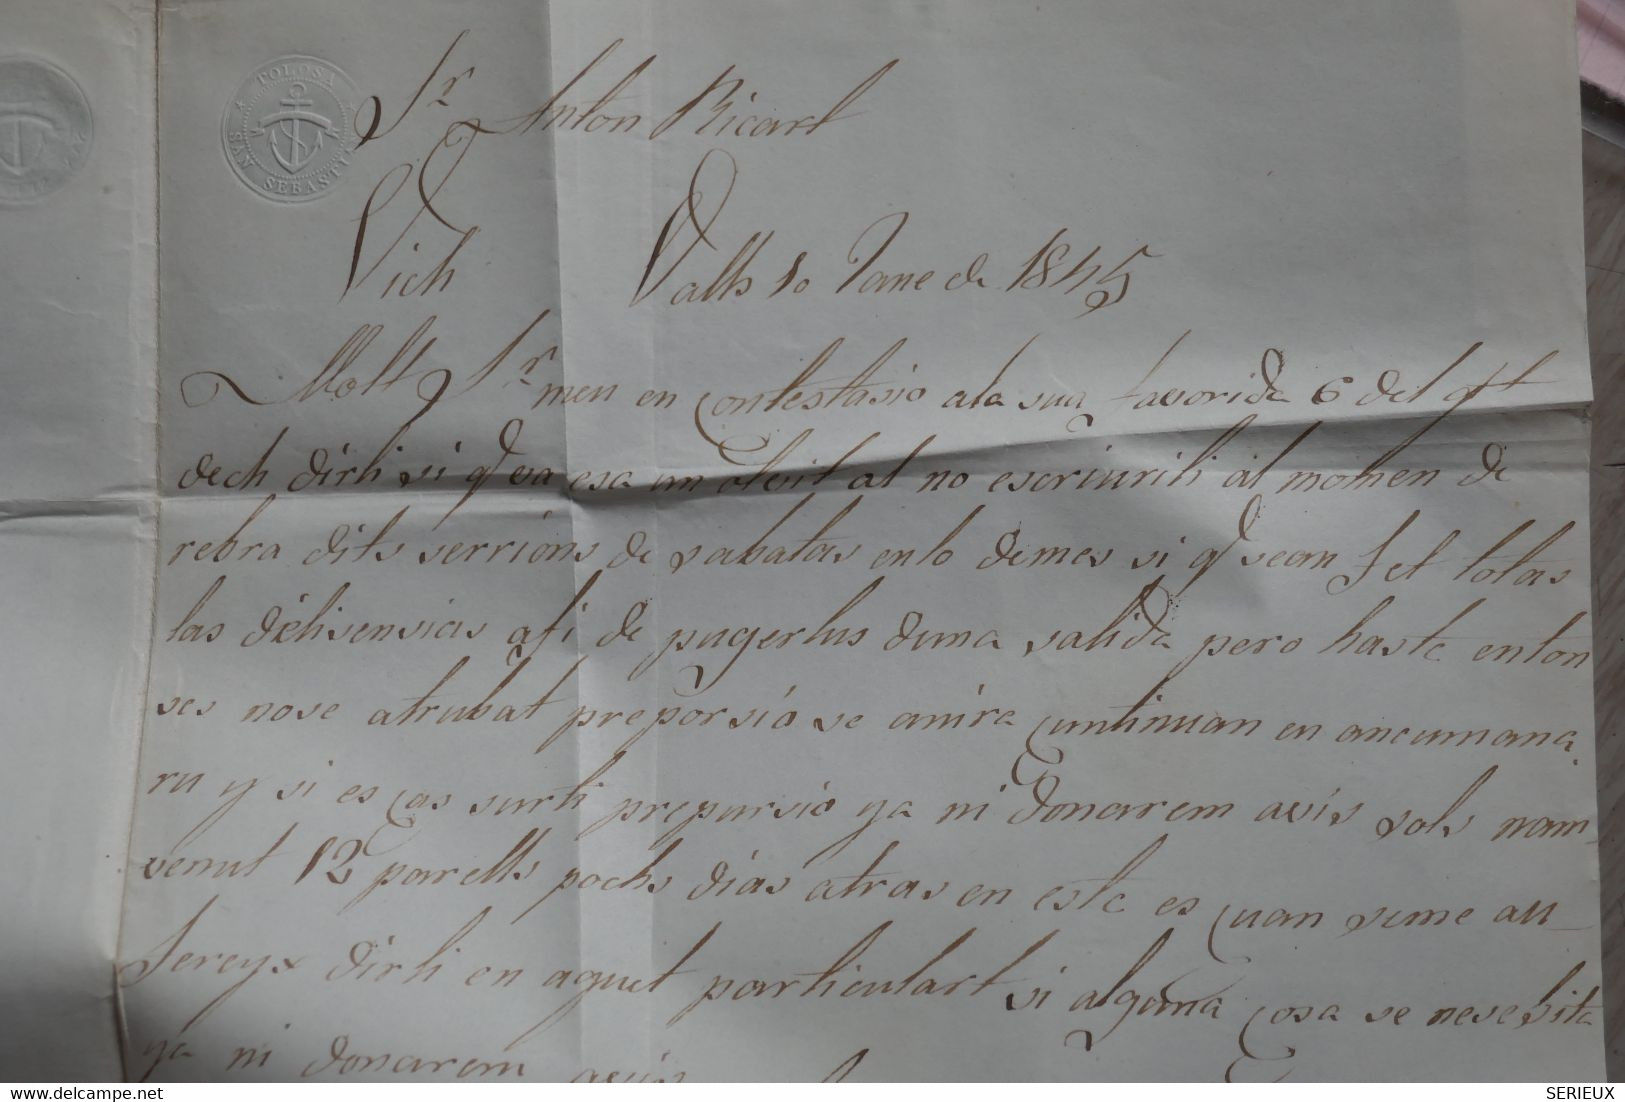 TOLOSA
SAN SEBASTIAN
Sr Anton Ricart
Vich Valls 10 Jane de 1845
Molt Sr meu en contestasio ala sua favorida 6 del
dech dirli si qe va esa un olvit al no escriurili al momen de
rebra dits serrions de sabatas enlo demes si qe sean fet totas
las délisensias afi de pugerlus duna salida pero haste enton
ses nose atrubat preporsió se anira cuntinuan en ancumana
ru y si es cas surti prepursió ya ni donarem avis sols nam
venut 12 parells pochs dias atras en este es quan sume au
Sereyx dirli en aquet particulart si alguna cosa se nesesita
ya ni donarem
delcampe.net
SERIEUX